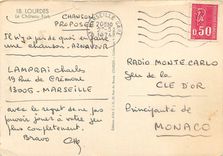 18. LOURDES
Le Château Fort
CHANSON
PROPOSÉE
Il n'y a pas de quoi en faire
une chanson. AZNAVOUR
LAMPRAI Charles
19 Rue de Crimée
13003 - MARSEILLE
avec le regret de ne pas
pouvoir jouer à votre jeu
plus complètement.
Bravo
MARSEILLE
1974
0,50
RADIO MONTE-CARLO
Jeu de la
CLE D'OR
Principauté de
MONACO